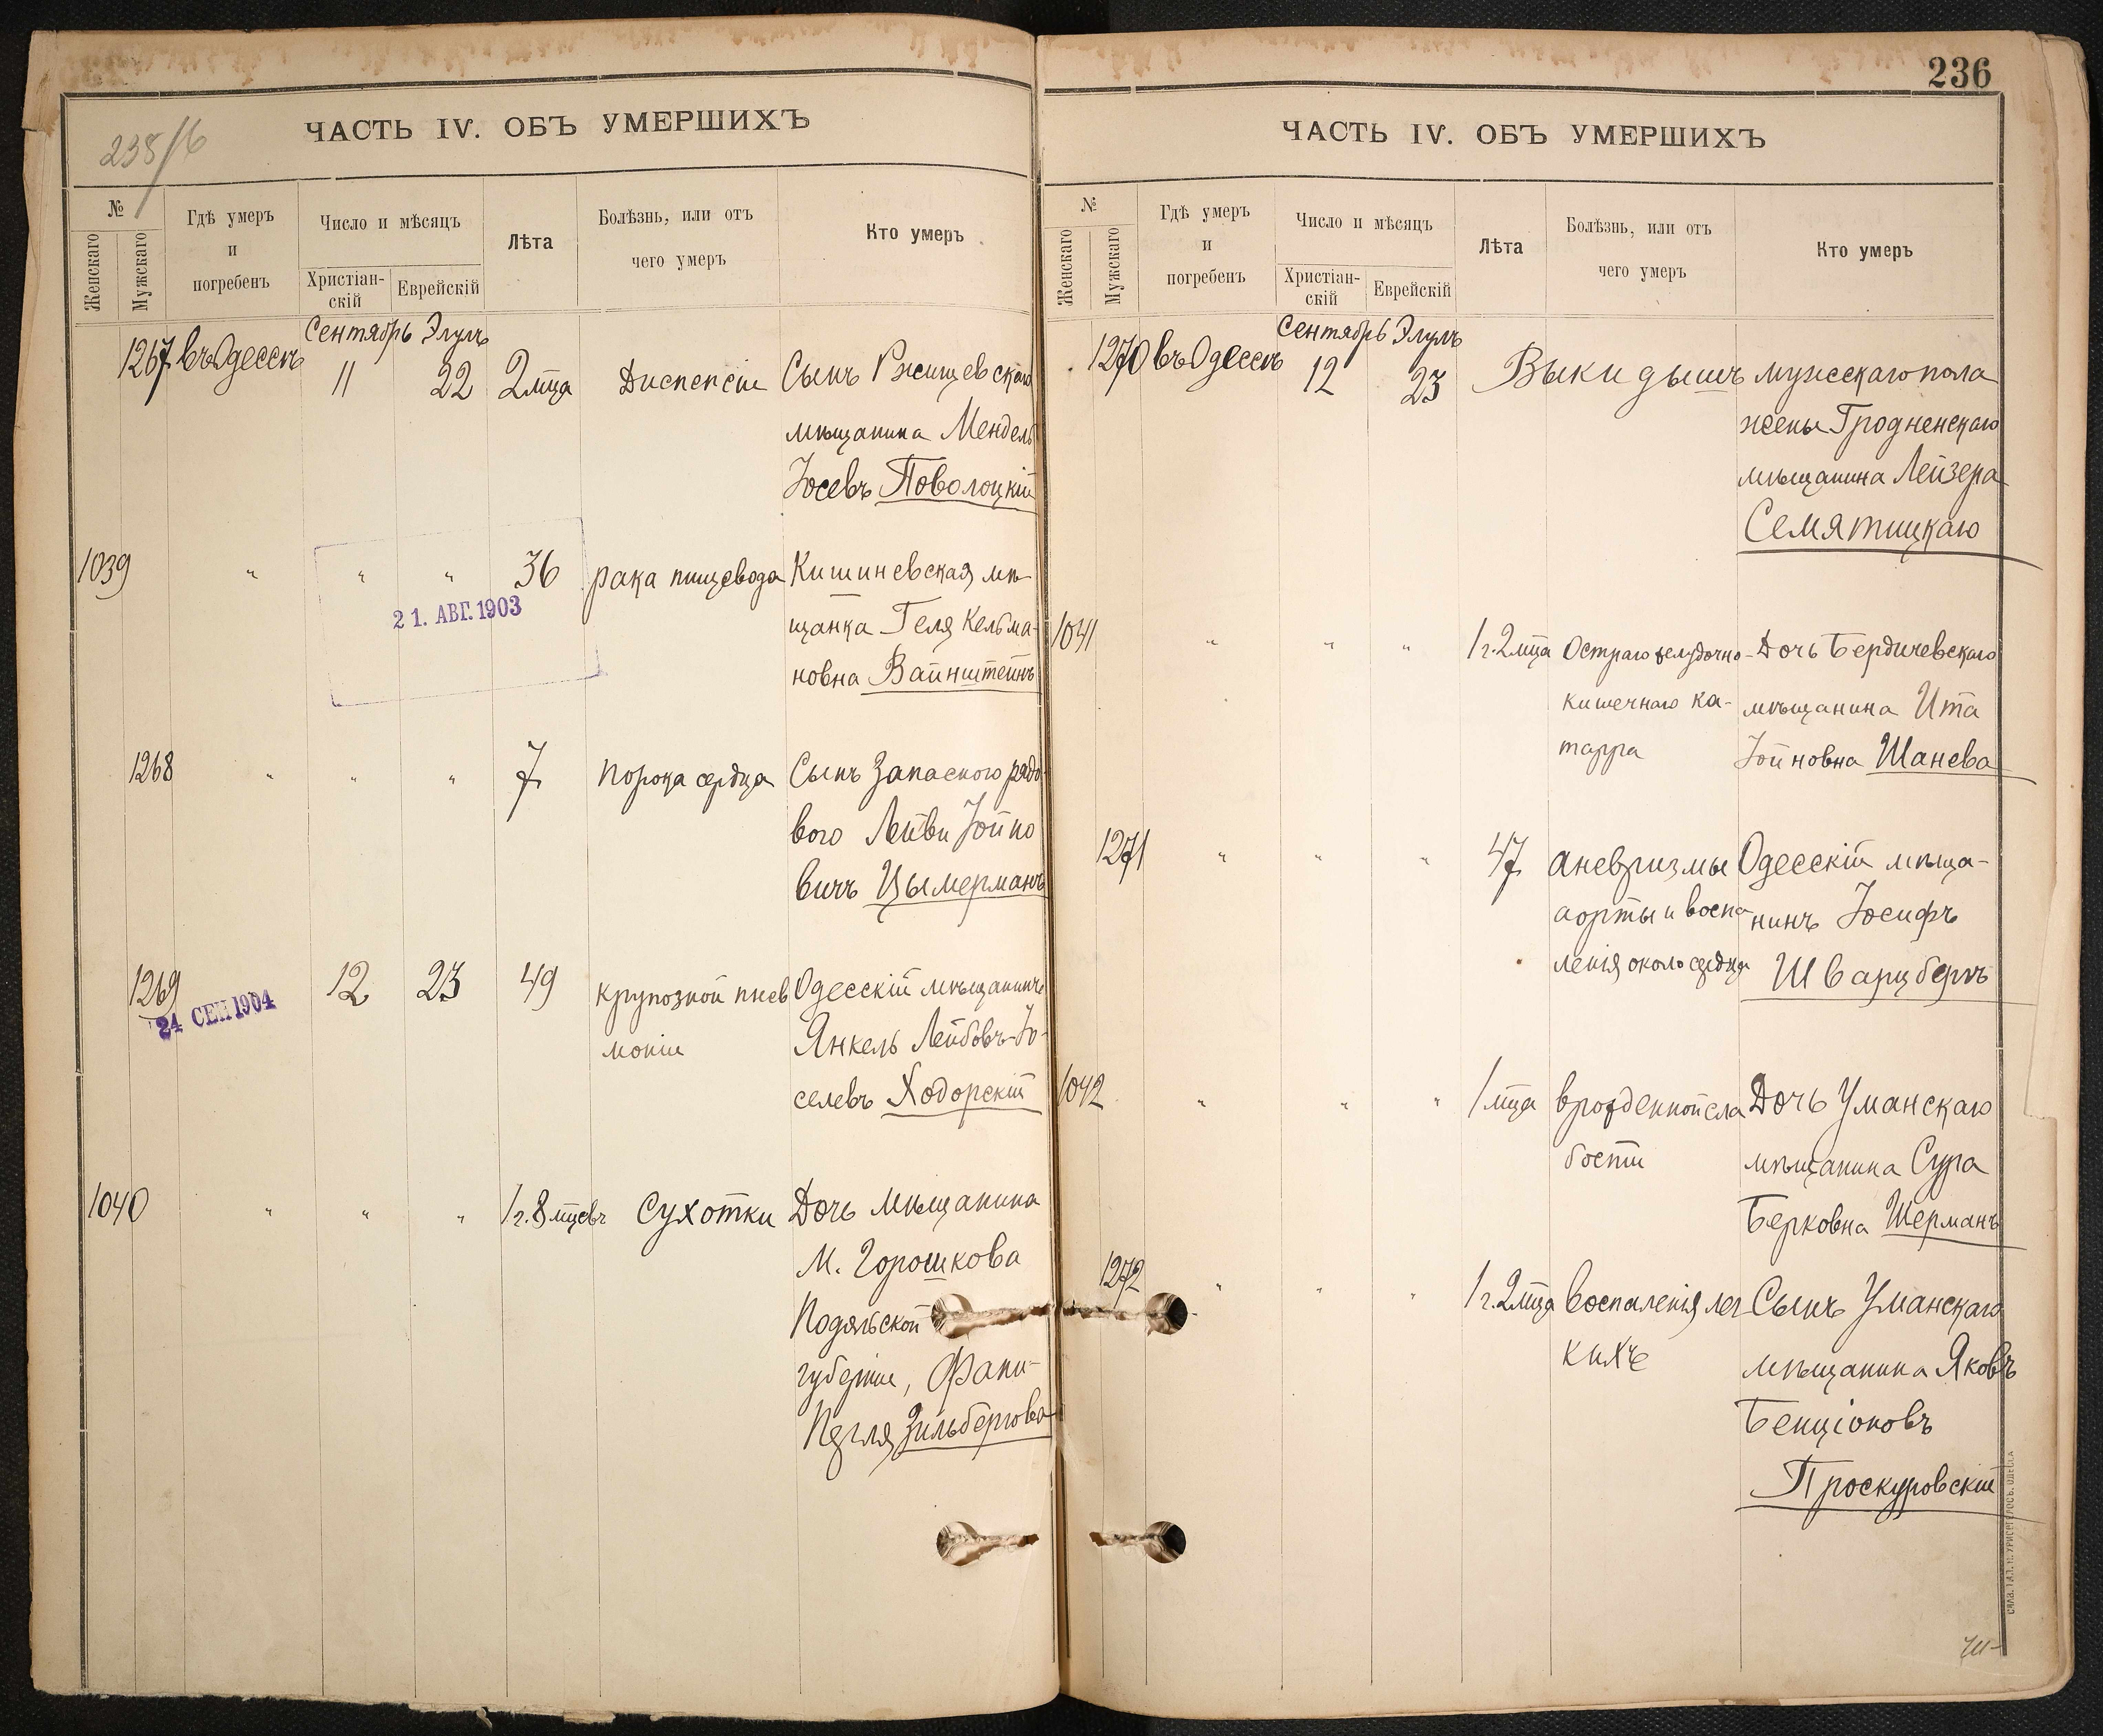 238/6
ЧАСТЬ IV. ОБЪ УМЕРШИХЪ
№
Женскаго
Мужскаго
Гдѣ умеръ
и
погребенъ
Число и мѣсяцъ
Христіан-
скій
Еврейскій
Лѣта
Болѣзнь, или отъ
чего умеръ
Кто умеръ
Сентябрь Элулъ
1267 въ Одессѣ 11 22 2 мѣца Диспепсіи Сынъ Ржищевскаго
мѣщанина Мендель
Іосевъ Поволоцкій
1039 " " " 36 рака пищевода Кишиневская мѣ-
щанка Геля Кельма-
новна Вайнштейнъ
21. АВГ. 1903
1268 " " " 7 порока сердца Сынъ Запасного рядо
вого Лейви Іойно
вичъ Цымерманъ
1269 12 23 49 крупозной пнев Одесскій мѣщанинъ
моніи Янкель Лейбовъ-Іо-
селевъ Ходорскій
24 СЕН 1904
1040 " " " 1 г. 8 мцевъ Сухотки Дочь мѣщанина
М. Горошкова
Подольской
губерніи, Фани-
Перля Зильбергова
236
ЧАСТЬ IV. ОБЪ УМЕРШИХЪ
№
Женскаго
Мужскаго
Гдѣ умеръ
и
погребенъ
Число и мѣсяцъ
Христіан-
скій
Еврейскій
Лѣта
Болѣзнь, или отъ
чего умеръ
Кто умеръ
Сентябрь Элулъ
1270 въ Одессѣ 12 23 Выкидышъ мужескаго пола
жены Гродненскаго
мѣщанина Лейзера
Семятицкаго
1041 " " " 1 г. 2 мца Остраго желудочно- Дочь Бердичевскаго
кишечнаго ка- мѣщанина Ита
тарра Іойновна Шанева
1271 " " " 47 аневризмы Одесскій мѣща-
аорты и воспа нинъ Іосифъ
ленія около сердца Шварцбергъ
1042 " " " 1 мца врожденной сла Дочь Уманскаго
бости мѣщанина Сура
Берковна Шерманъ
1272 " " " 1 г. 2 мца воспаленія лег Сынъ Уманскаго
кихъ мѣщанина Яковъ
Бенціоновъ
Проскуровскій